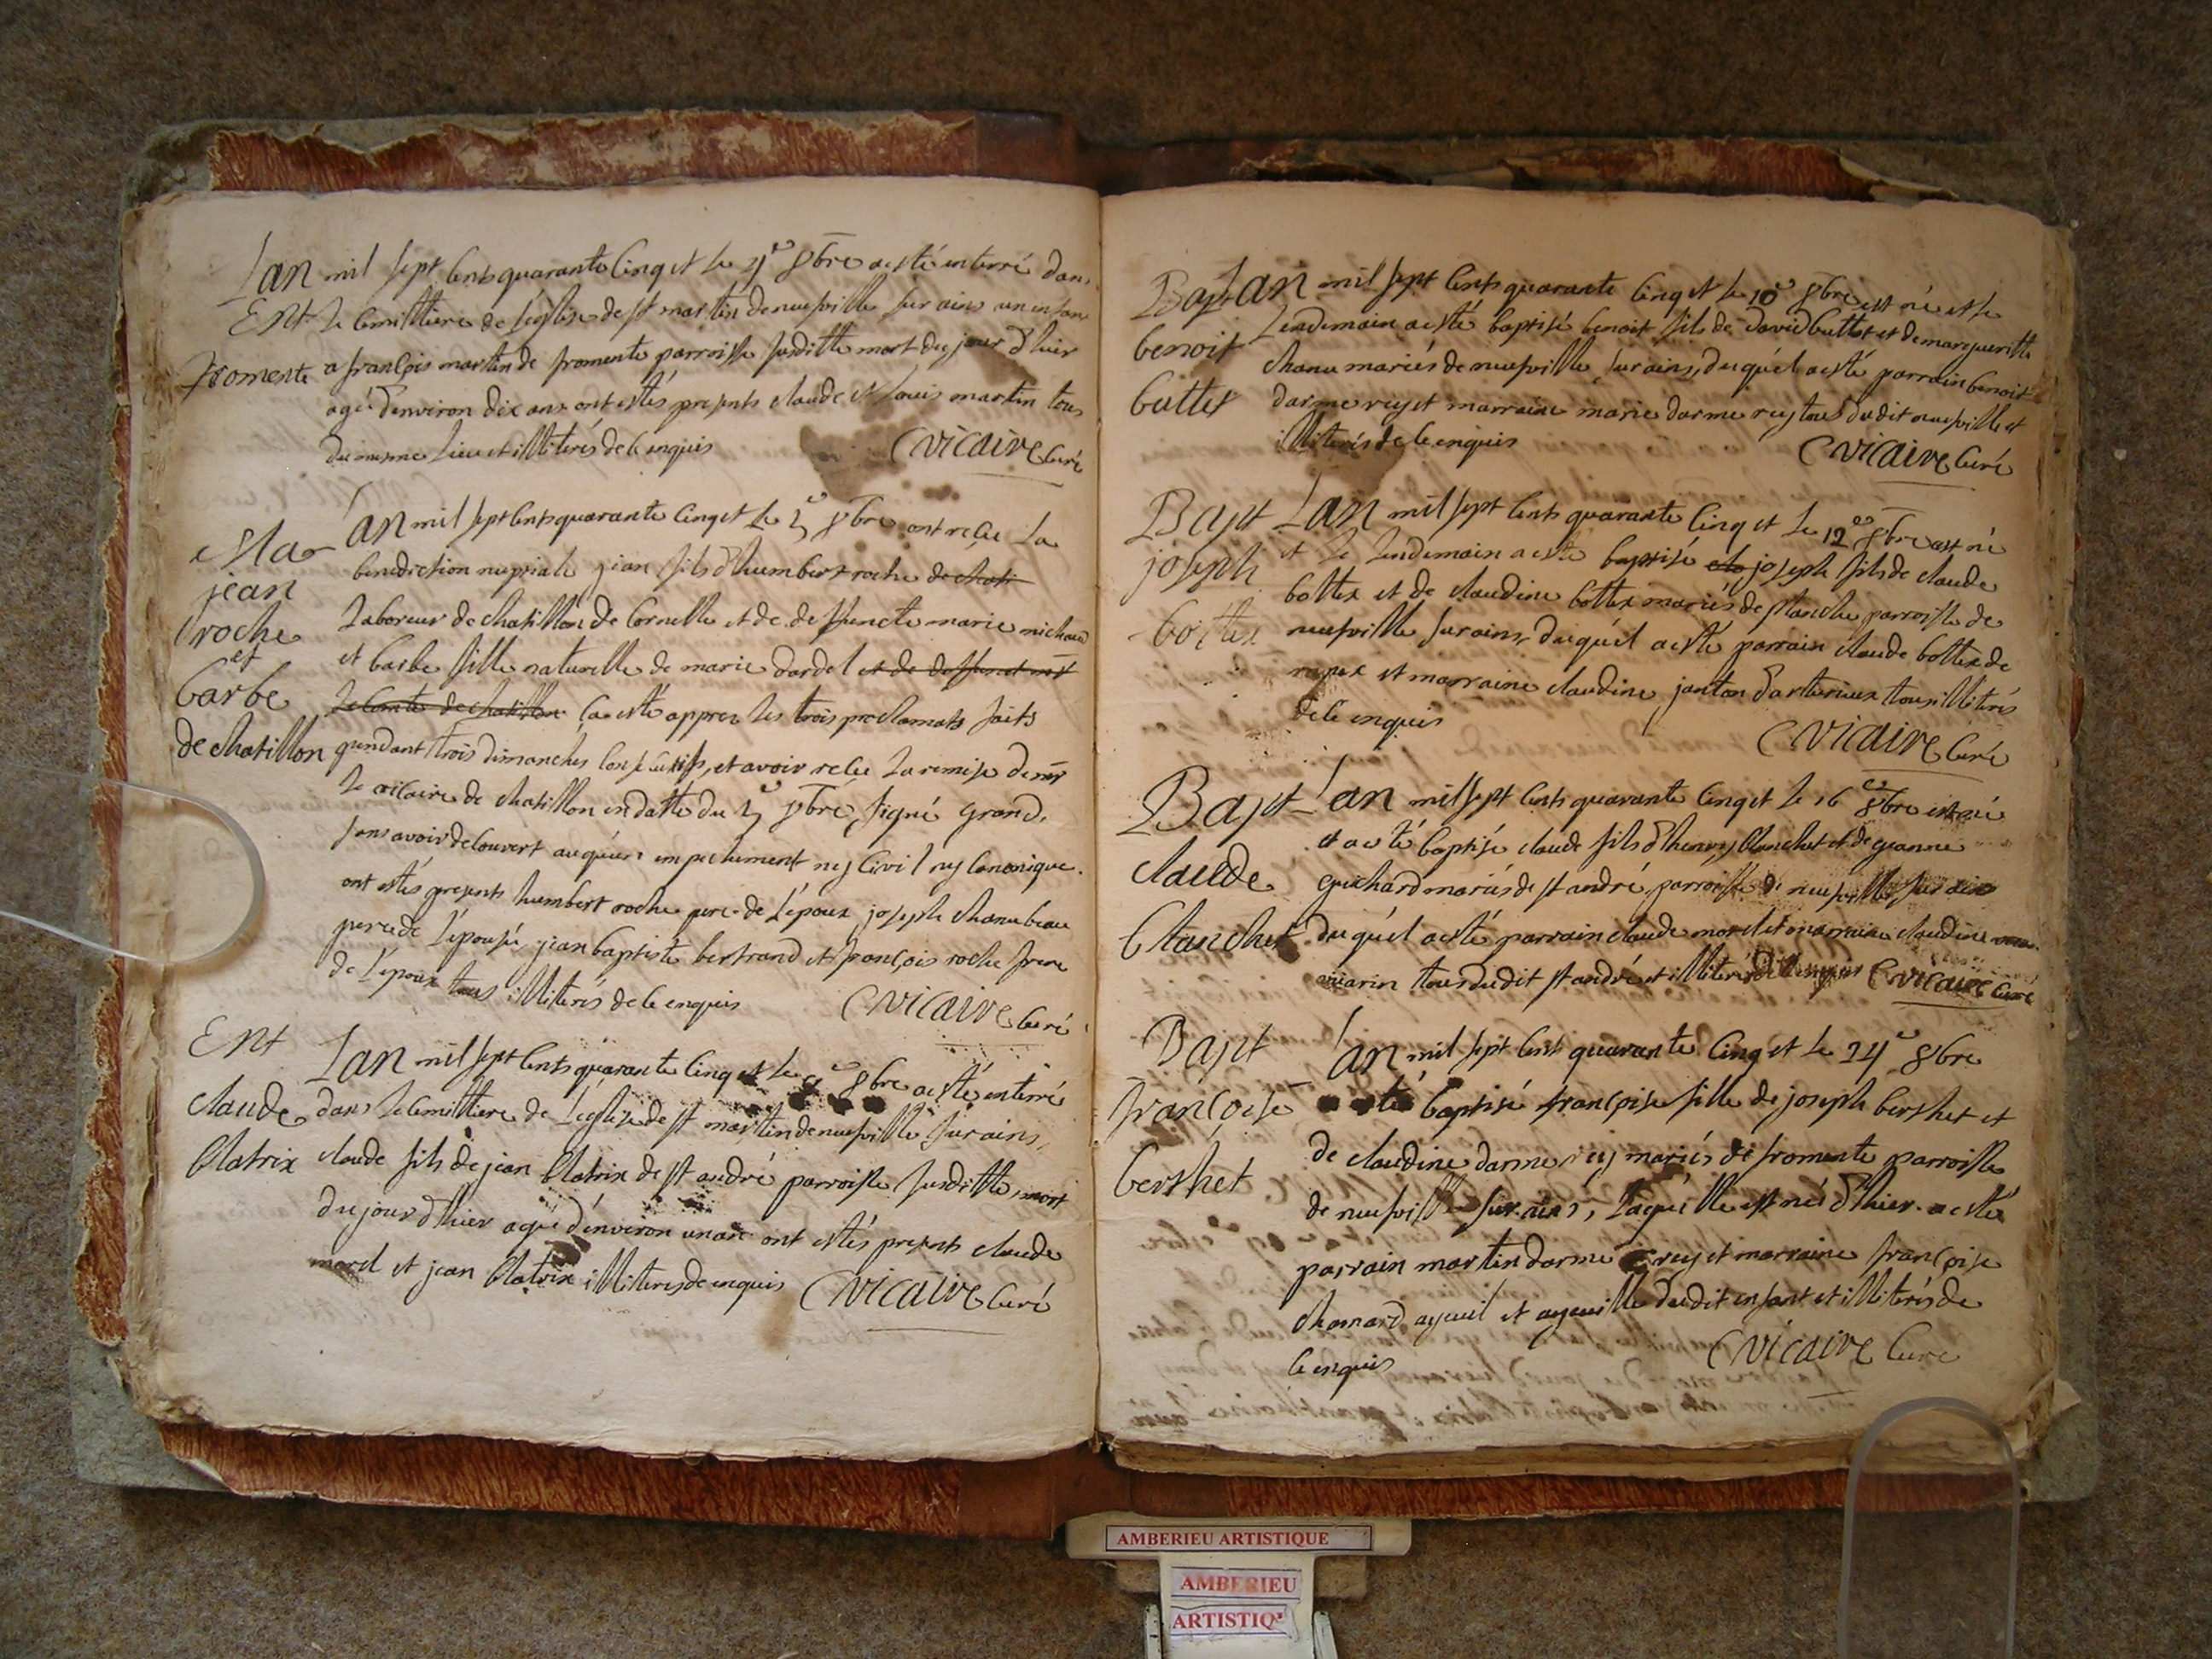 Lan mil sept cents quarante cinq et le 4e 8bre a esté enterré dans
Ent le cimittiere de l'eglise de st martin de neufville sur ains un enfan
fromente a françois martin de fromente parroisse susditte mort du jour d'hier
agé d'environ dix ans ont estés presents claude et louis martin tous
du mesme lieu et illiterés de ce enquis Cvicaire curé
Mar
jean
roche
et
barbe
de chatillon
Lan mil sept cents quarante cinq et le 5e 8bre ont reçu la
benediction nuptiale jean fils d'humbert roche de chati
laboreur de chatillon de cornelle et de deffuncte marie michau
et barbe fille naturelle de marie dardel et de deffunct mr
le comte de chatillon ça esté apprez les trois proclamats faits
pendant trois dimanches consecutifs, et avoir reçu la remise de mr
le vicaire de chatillon en datte du 5 8bre, signé grand,
sans avoir decouvert auqu'un empechement ny civil ny canonique.
ont estés presents humbert roche pere de l'epoux joseph chanu beau
pere de l'epouse, jean baptiste bertrand et françois roche frere
de l'epoux tous illiterés de ce enquis Cvicaire curé
Ent
claude
Clatrix
Lan mil sept cents quarante cinq et le 8bre a esté enterré
dans le cimittiere de l'eglise de st martin de neufville sur ains,
claude fils de jean Clatrix de st andré parroisse susditte, mort
du jour d'hier agé d'environ un an ont estés presents claude
morel et jean Clatrix illiterés de enquis Cvicaire curé
Bapt
benoit
buttet
Lan mil sept cents quarante cinq et le 10e 8bre est né et le
lendemain a esté baptisé benoit fils de david buttet et de margueritte
chanu mariés de neufville sur ains, duquel a esté parrain benoit
darmerey et marraine marie darmerey tous dudit neufville et
illiterés de ce enquis Cvicaire curé
Bapt
joseph
bottex
Lan mil sept cents quarante cinq et le 12e 8bre est né
et le lendemain a esté baptisé cla joseph fils de claude
bottex et de claudine bottex mariés de planche parroisse de
neufville sur ains, duquel a esté parrain claude bottex de
et marraine claudine janton d'arterieux tous illiterés
de ce enquis Cvicaire curé
Bapt
claude
Blanchet
Lan mil sept cents quarante cinq et le 16e 8bre est né
et a esté baptisé claude fils d'henry Blanchet et de jeanne
guichard mariés de st andré, parroisse de neufville sur ains
duquel a esté parrain claude morel et marraine claudine
marin tous dudit st andré et illiterés de ce enquis Cvicaire curé
Bapt
françoise
berthet
Lan mil sept cents quarante cinq et le 24e 8bre
a esté baptisé françoise fille de joseph berthet et
de claudine darmerey mariés de fromente parroisse
de neufville sur ains, laquelle est né d'hier. a esté
parrain martin darmerey et marraine françoise
chanard ayeuil et ayeuille dudit enfant et illiterés de
ce enquis Cvicaire curé
AMBERIEU ARTISTIQUE
AMBERIEU
ARTISTIQ